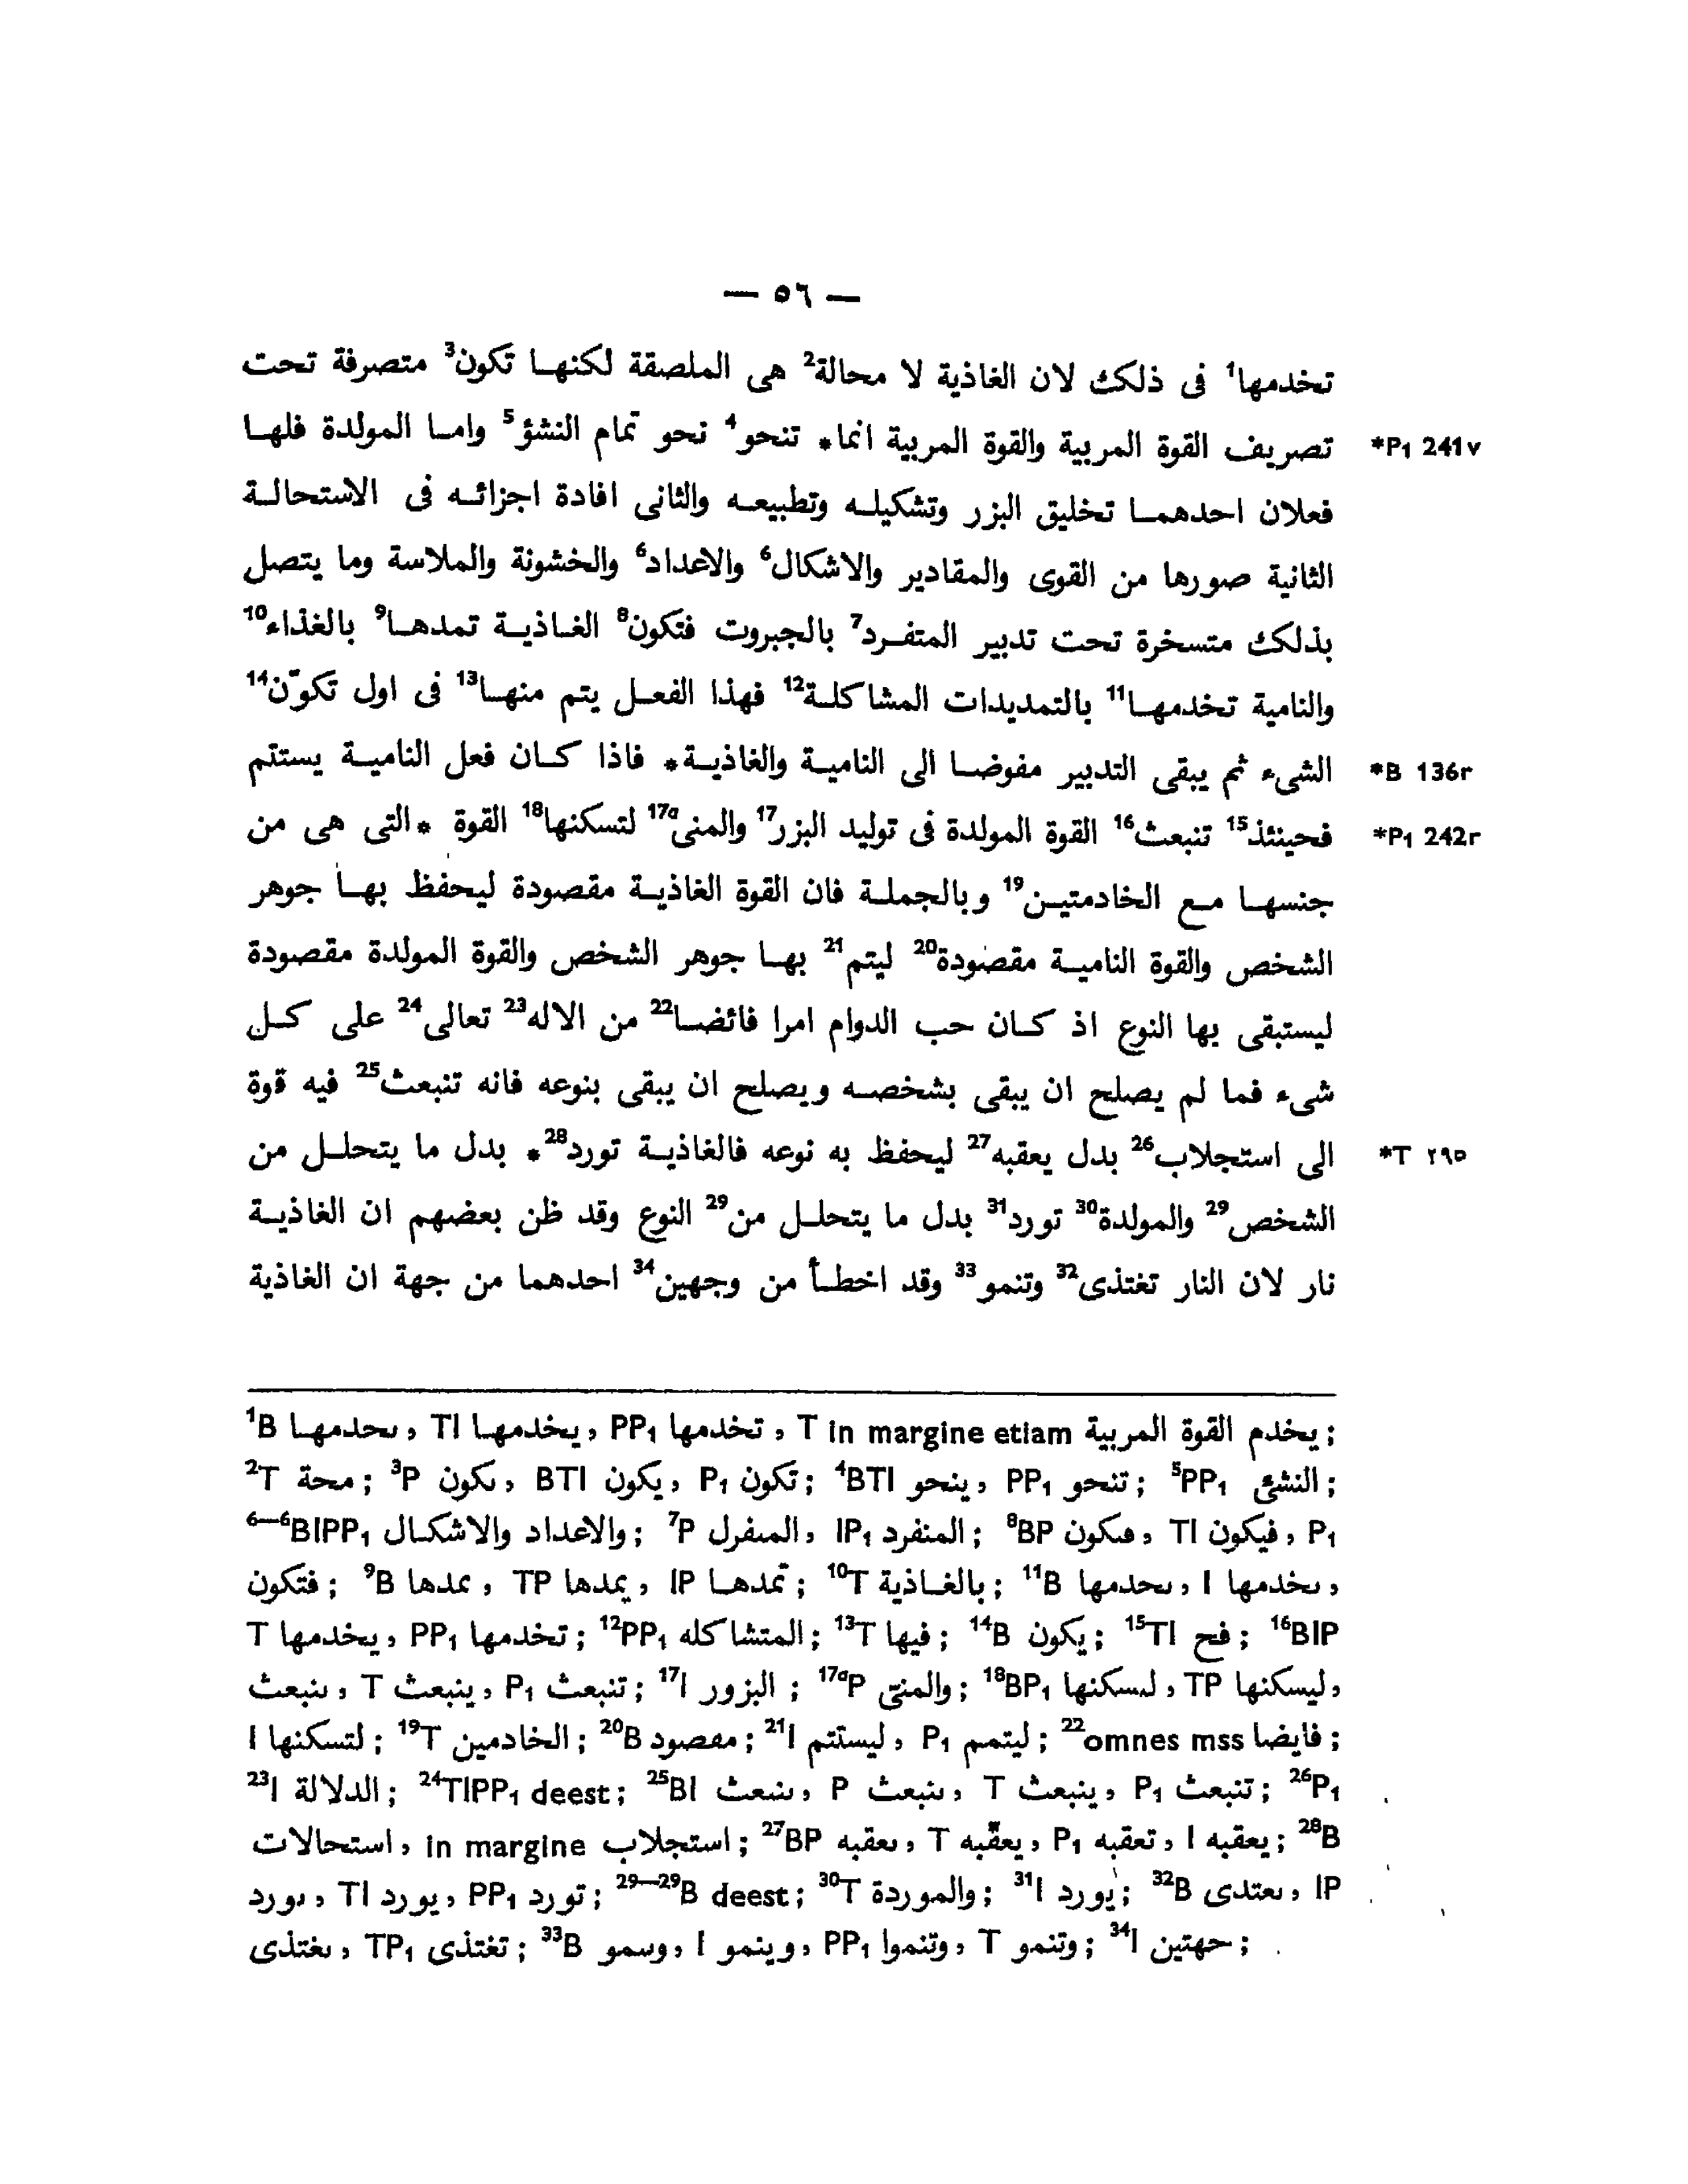 — ٥٦ —
تخدمها¹ فى ذلك لان الغاذية لا محالة² هى الملصقة لكنها تكون³ متصرفة تحت
تصريف القوة المربية والقوة المربية انما* تنحو⁴ نحو تمام النشؤ⁵ واما المولدة فلها *P₁ 241v
فعلان احدهما تخليق البزر وتشكيله وتطبيعه والثانى افادة اجزائه فى الاستحالة
الثانية صورها من القوى والمقادير والاشكال⁶ والاعداد⁶ والخشونة والملاسة وما يتصل
بذلك متسخرة تحت تدبير المتفرد⁷ بالجبروت فتكون⁸ الغاذية تمدها⁹ بالغذاء¹⁰
والنامية تخدمها¹¹ بالتمديدات المشاكلة¹² فهذا الفعل يتم منها¹³ فى اول تكوّن¹⁴
الشىء ثم يبقى التدبير مفوضا الى النامية والغاذية* فاذا كان فعل النامية يستتم *B 136r
فحينئذ¹⁵ تنبعث¹⁶ القوة المولدة فى توليد البزر¹⁷ والمنى¹⁷ᵃ لتسكنها¹⁸ القوة *التى هى من *P₁ 242r
جنسها مع الخادمتين¹⁹ وبالجملة فان القوة الغاذية مقصودة ليحفظ بها جوهر
الشخص والقوة النامية مقصودة²⁰ ليتم²¹ بها جوهر الشخص والقوة المولدة مقصودة
ليستبقى بها النوع اذ كان حب الدوام امرا فائضا²² من الاله²³ تعالى²⁴ على كل
شىء فما لم يصلح ان يبقى بشخصه ويصلح ان يبقى بنوعه فانه تنبعث²⁵ فيه قوة
الى استجلاب²⁶ بدل يعقبه²⁷ ليحفظ به نوعه فالغاذية تورد²⁸* بدل ما يتحلل من *T ٢٩٥
الشخص²⁹ والمولدة³⁰ تورد³¹ بدل ما يتحلل من²⁹ النوع وقد ظن بعضهم ان الغاذية
نار لان النار تغتذى³² وتنمو³³ وقد اخطأ من وجهين³⁴ احدهما من جهة ان الغاذية
¹B ٮحدمها ، TI يخدمها ، PP₁ تخدمها ، T in margine etiam يخدم القوة المربية ;
²T محة ; ³P ٮكون ، BTI يكون ، P₁ تكون ; ⁴BTI ينحو ، PP₁ تنحو ; ⁵PP₁ النشئ ;
⁶⁻⁶BIPP₁ والاعداد والاشكال ; ⁷P المٮفرل ، IP₁ المنفرد ; ⁸BP فٮكون ، TI فيكون ، P₁
فتكون ; ⁹B عدها ، TP يمدها ، IP تمدها ; ¹⁰T بالغاذية ; ¹¹B ٮحدمها ، I ٮخدمها ،
T يخدمها ، PP₁ تخدمها ; ¹²PP₁ المتشاكله ; ¹³T فيها ; ¹⁴B يكون ; ¹⁵TI فح ; ¹⁶BIP
ٮنبعث ، T ينبعث ، P₁ تنبعث ; ¹⁷I البزور ; ¹⁷ᵃP والمنىّ ; ¹⁸BP₁ لٮسكنها ، TP ليسكنها ،
I لتسكنها ; ¹⁹T الخادمين ; ²⁰B مقصود ; ²¹I ليستتم ، P₁ ليتمم ; ²²omnes mss فايضا ;
²³I الدلالة ; ²⁴TIPP₁ deest ; ²⁵BI ٮٮبعث ، P ٮنبعث ، T ينبعث ، P₁ تنبعث ; ²⁶P₁
استحالات ، in margine استجلاب ; ²⁷BP ٮعقبه ، T يعقّبه ، P₁ تعقبه ، I يعقبه ; ²⁸B
ٮورد ، TI يورد ، PP₁ تورد ; ²⁹⁻²⁹B deest ; ³⁰T والموردة ; ³¹I يورد ; ³²B ٮعتدى ، IP
ٮغتذى ، TP₁ تغتذى ; ³³B وٮٮمو ، I وينمو ، PP₁ وتنموا ، T وتنمو ; ³⁴I جهتين ;